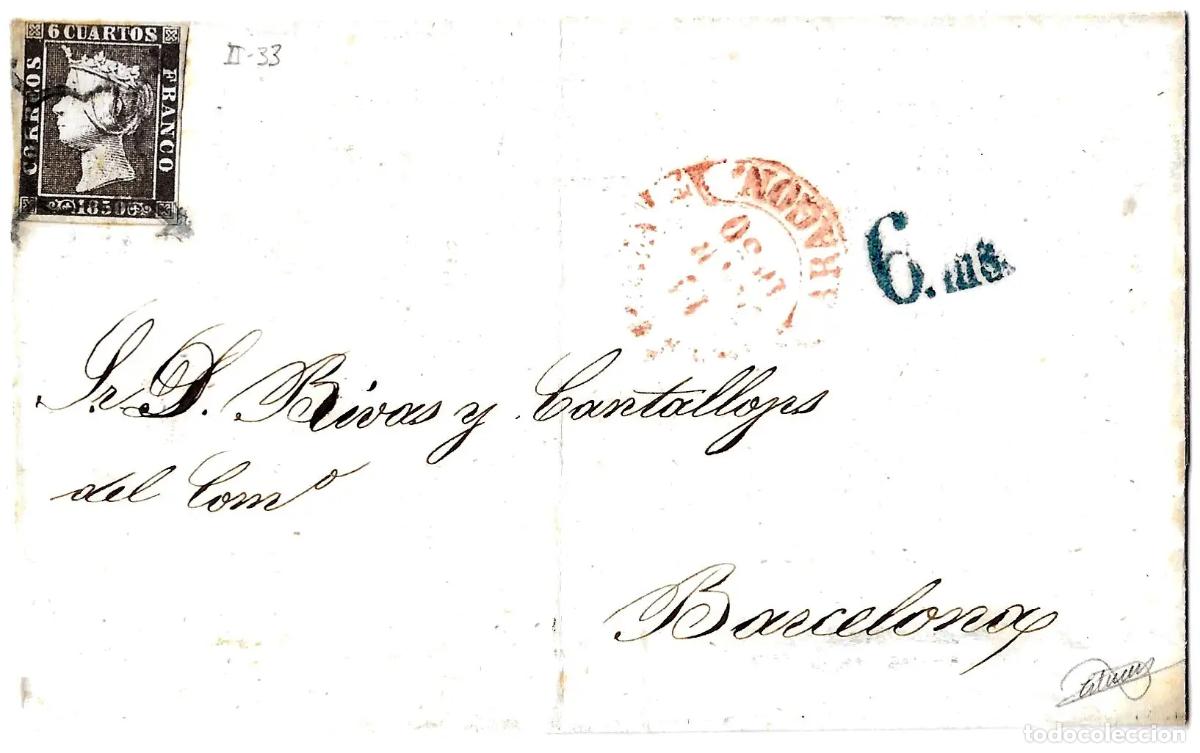 6 CUARTOS
CORREOS
FRANCO
1850
II-33
ARAGON.
50
6.ms.
Sr. D. Rivas y Cantallops
del Com.º
Barcelona
todocoleccion